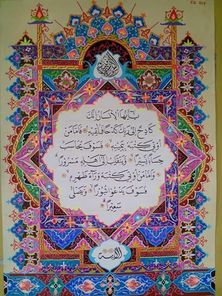 يأيها الإنسان إنك
كادح إلى ربك كدحا فملقيه * فأما من
أوتي كتبه بيمينه * فسوف يحاسب
حسابا يسيرا * وينقلب إلى أهله مسرورا
* وأما من أوتي كتبه وراء ظهره *
فسوف يدعوا ثبورا * ويصلى
سعيرا *